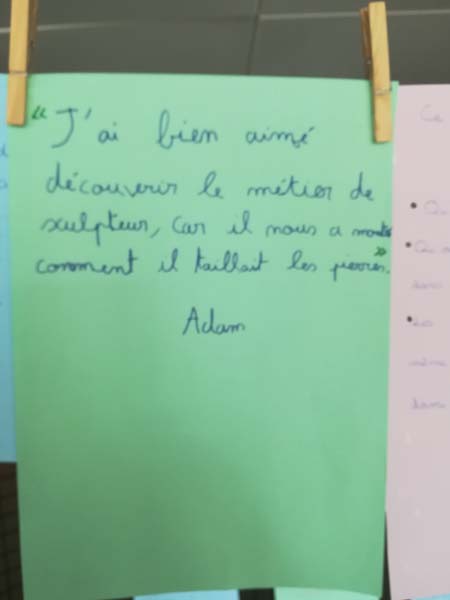 « J'ai bien aimé
découvrir le métier de
sculpteur, car il nous a montré
comment il taillait les pierres. »
Adam
Ce